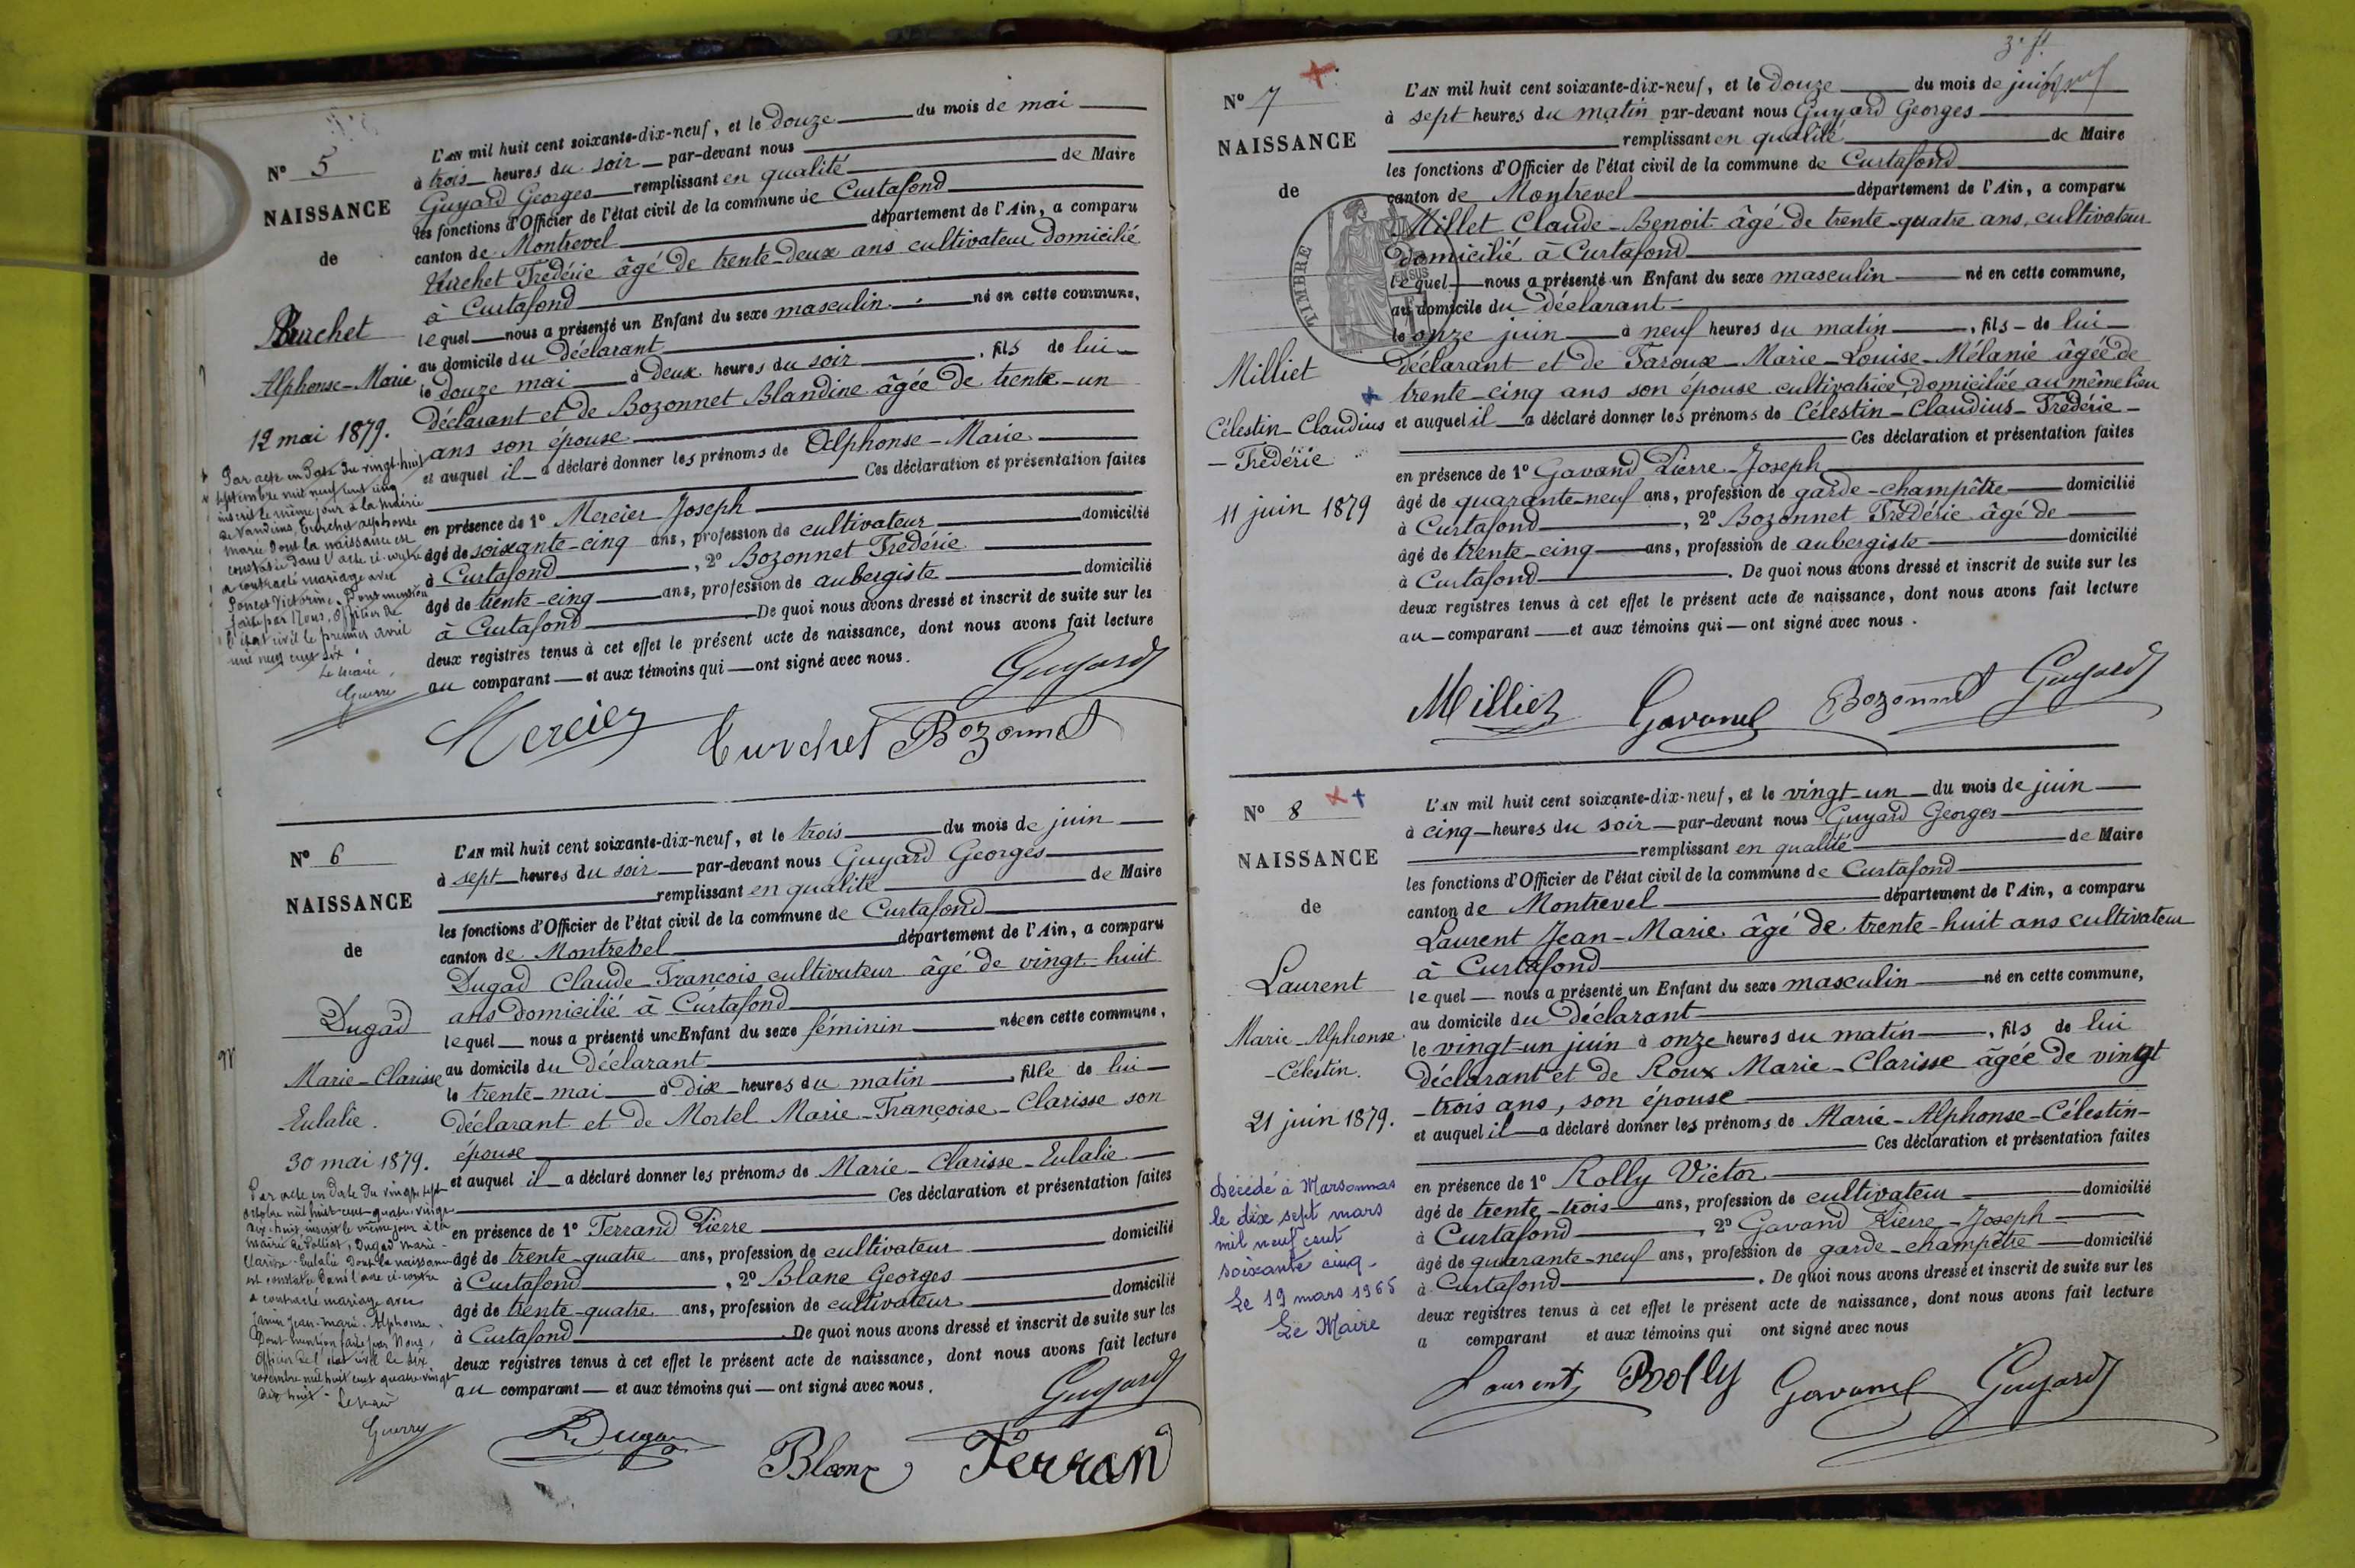 N° 5
NAISSANCE
de
Alphonse-Marie
12 mai 1879.
Par acte en date du vingt-huit
septembre mil neuf cent cinq
inscrit le même jour à la mairie
de Vandeins, Turchet Alphonse
Marie dont la naissance est
constatée dans l'acte ci-contre
a contracté mariage avec
Poncet Victorine. Dont mention
faite par Nous, officier de
l'état civil le premier avril
mil neuf cent six.
Le Maire,
Guerry
L'AN mil huit cent soixante-dix-neuf, et le douze du mois de mai
à trois heures du soir par-devant nous
Guyard Georges remplissant en qualité de Maire
les fonctions d'Officier de l'état civil de la commune de Curtafond
canton de Montrevel département de l'Ain, a comparu
Turchet Frédéric âgé de trente-deux ans cultivateur domicilié
à Curtafond
lequel nous a présenté un Enfant du sexe masculin né en cette commune,
au domicile du déclarant
le douze mai à deux heures du soir, fils de lui
déclarant et de Bozonnet Blandine âgée de trente-un
ans son épouse
et auquel il a déclaré donner les prénoms de Alphonse-Marie
Ces déclaration et présentation faites
en présence de 1° Mercier Joseph
âgé de soixante-cinq ans, profession de cultivateur domicilié
à Curtafond, 2° Bozonnet Frédéric
âgé de trente-cinq ans, profession de aubergiste domicilié
à Curtafond De quoi nous avons dressé et inscrit de suite sur les
deux registres tenus à cet effet le présent acte de naissance, dont nous avons fait lecture
au comparant et aux témoins qui ont signé avec nous.
Guyard
Mercier Turchet Bozonnet
N° 6
NAISSANCE
de
Dugad
Marie-Clarisse
Eulalie.
30 mai 1879.
Par acte en date du vingt-sept
octobre mil huit cent quatre-vingt
dix-huit inscrit le même jour à la
mairie de Polliat, Dugad Marie-
Clarisse-Eulalie dont la naissance
est constatée dans l'acte ci-contre
a contracté mariage avec
Janin Jean-Marie-Alphonse.
Dont mention faite par Nous,
officier de l'état civil le six
novembre mil huit cent quatre-vingt
dix huit. Le Maire
Guerry
L'AN mil huit cent soixante-dix-neuf, et le trois du mois de juin
à sept heures du soir par-devant nous Guyard Georges
remplissant en qualité de Maire
les fonctions d'Officier de l'état civil de la commune de Curtafond
canton de Montrevel département de l'Ain, a comparu
Dugad Claude-François cultivateur âgé de vingt-huit
ans domicilié à Curtafond
lequel nous a présenté une Enfant du sexe féminin née en cette commune,
au domicile du déclarant
le trente-mai à dix heures du matin, fille de lui
déclarant et de Mortel Marie-Françoise-Clarisse son
épouse
et auquel il a déclaré donner les prénoms de Marie-Clarisse-Eulalie
Ces déclaration et présentation faites
en présence de 1° Ferrand Pierre
âgé de trente-quatre ans, profession de cultivateur domicilié
à Curtafond, 2° Blanc Georges
âgé de trente-quatre ans, profession de cultivateur domicilié
à Curtafond. De quoi nous avons dressé et inscrit de suite sur les
deux registres tenus à cet effet le présent acte de naissance, dont nous avons fait lecture
au comparant et aux témoins qui ont signé avec nous.
Guyard
Dugad Blanc Ferrand
3e ft
N° 7
NAISSANCE
de
Milliet
Célestin-Claudius
-Frédéric
11 juin 1879
TIMBRE
L'AN mil huit cent soixante-dix-neuf, et le douze du mois de juin
à sept heures du matin par-devant nous Guyard Georges
remplissant en qualité de Maire
les fonctions d'Officier de l'état civil de la commune de Curtafond
canton de Montrevel département de l'Ain, a comparu
Millet Claude-Benoit âgé de trente-quatre ans, cultivateur
domicilié à Curtafond
lequel nous a présenté un Enfant du sexe masculin né en cette commune,
au domicile du déclarant
le onze juin à neuf heures du matin, fils de lui
déclarant et de Faroux-Marie-Louise-Mélanie âgée de
trente-cinq ans son épouse cultivatrice, domiciliée au même lieu
et auquel il a déclaré donner les prénoms de Célestin-Claudius-Frédéric-
Ces déclaration et présentation faites
en présence de 1° Gavand Pierre-Joseph
âgé de quarante-neuf ans, profession de garde-champêtre domicilié
à Curtafond, 2° Bozonnet Frédéric âgé de
âgé de trente-cinq ans, profession de aubergiste domicilié
à Curtafond. De quoi nous avons dressé et inscrit de suite sur les
deux registres tenus à cet effet le présent acte de naissance, dont nous avons fait lecture
au comparant et aux témoins qui ont signé avec nous.
Milliet Gavand Bozonnet Guyard
N° 8
NAISSANCE
de
Laurent
Marie-Alphonse
-Célestin.
21 juin 1879.
Décédé à Marsonnas
le dix sept mars
mil neuf cent
soixante cinq.
Le 19 mars 1965
Le Maire
L'AN mil huit cent soixante-dix-neuf, et le vingt-un du mois de juin
à cinq heures du soir par-devant nous Guyard Georges
remplissant en qualité de Maire
les fonctions d'Officier de l'état civil de la commune de Curtafond
canton de Montrevel département de l'Ain, a comparu
Laurent Jean-Marie âgé de trente-huit ans cultivateur
à Curtafond
lequel nous a présenté un Enfant du sexe masculin né en cette commune,
au domicile du déclarant
le vingt-un juin à onze heures du matin, fils de lui
déclarant et de Roux Marie-Clarisse âgée de vingt
-trois ans, son épouse
et auquel il a déclaré donner les prénoms de Marie-Alphonse-Célestin-
Ces déclaration et présentation faites
en présence de 1° Rolly Victor
âgé de trente-trois ans, profession de cultivateur domicilié
à Curtafond, 2° Gavand Pierre-Joseph
âgé de quarante-neuf ans, profession de garde-champêtre domicilié
à Curtafond. De quoi nous avons dressé et inscrit de suite sur les
deux registres tenus à cet effet le présent acte de naissance, dont nous avons fait lecture
a comparant et aux témoins qui ont signé avec nous
Laurent Rolly Gavand Guyard